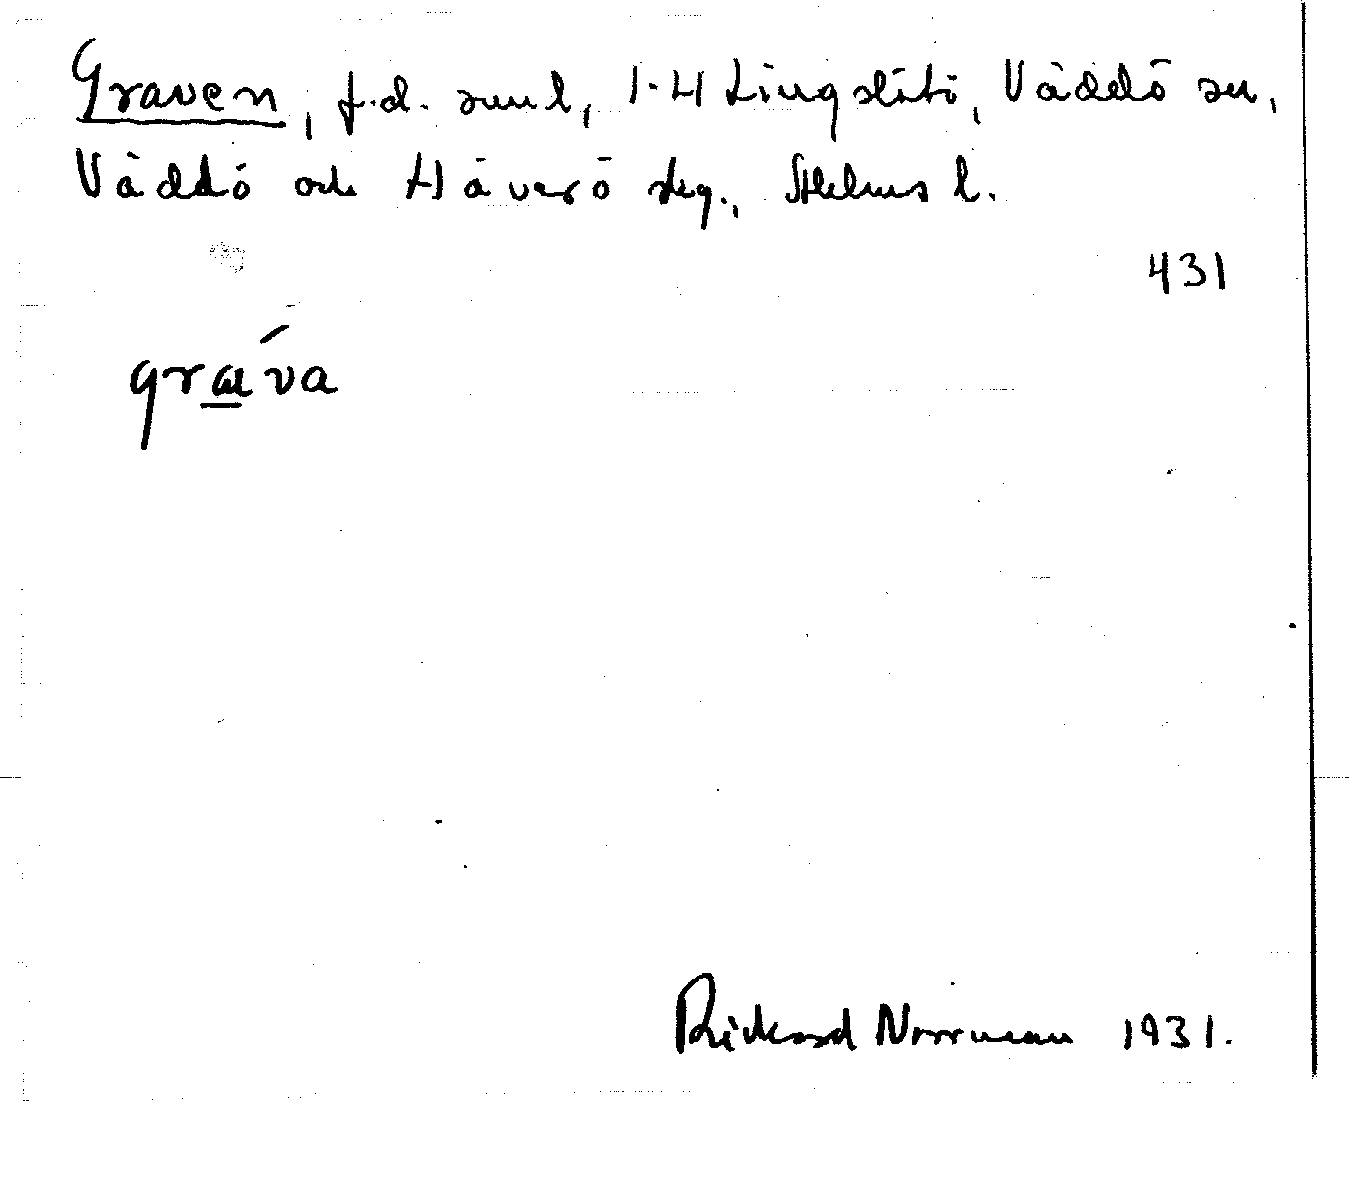 Graven, f.d. smul, 1-4 Tingslätö, Väddö sn,
Väddö och Häverö skg., Sthlms l.
431
græ´va
Rickard Norrman 1931.